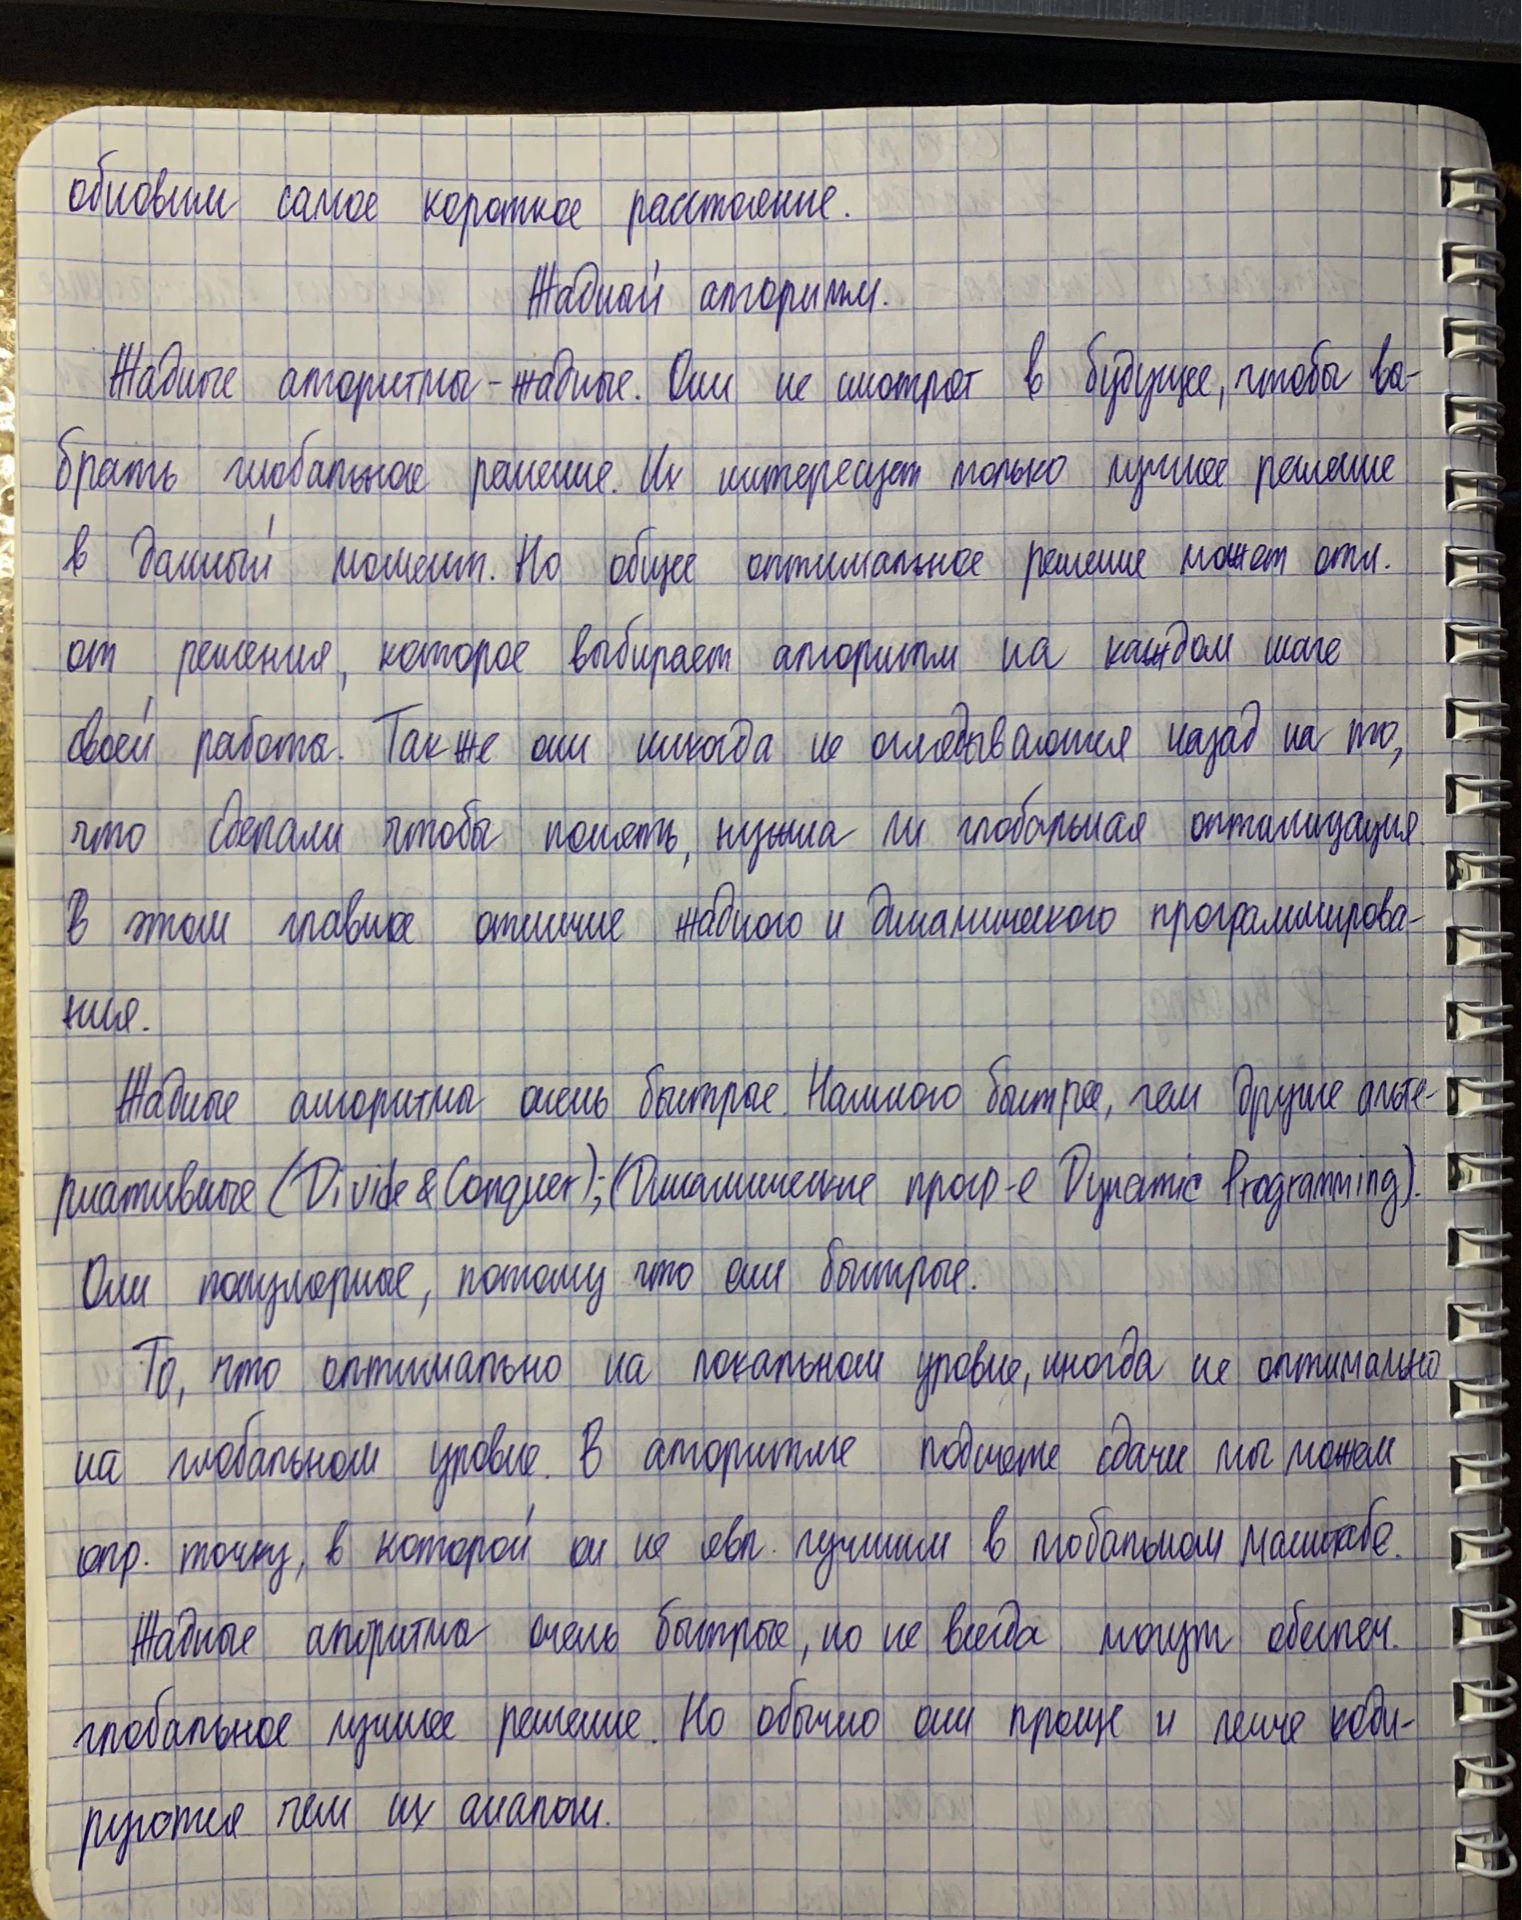 обновим самое короткое расстояние.
Жадный алгоритм.
Жадные алгоритмы - жадные. Они не смотрят в будущее, чтобы вы-
брать глобальное решение. Их интересует только лучшее решение
в данный момент. Но общее оптимальное решение может отл.
от решения, которое выбирает алгоритм на каждом шаге
своей работы. Также они никогда не оглядываются назад на то,
что сделали чтобы понять, нужна ли глобальная оптимизация.
В этом главное отличие жадного и динамического программирова-
ния.
Жадные алгоритмы очень быстрые. Намного быстрее, чем другие альте-
рнативные (Divide & Conquer); (Динамические прогр-е Dynamic Programming).
Они популярные, потому что они быстрые.
То, что оптимально на локальном уровне, иногда не оптимально
на глобальном уровне. В алгоритме подсчете сдачи мы можем
опр. точку, в которой он не явл. лучшим в глобальном масштабе.
Жадные алгоритмы очень быстрые, но не всегда могут обеспеч.
глобальное лучшее решение. Но обычно они проще и легче коди-
руются чем их аналоги.